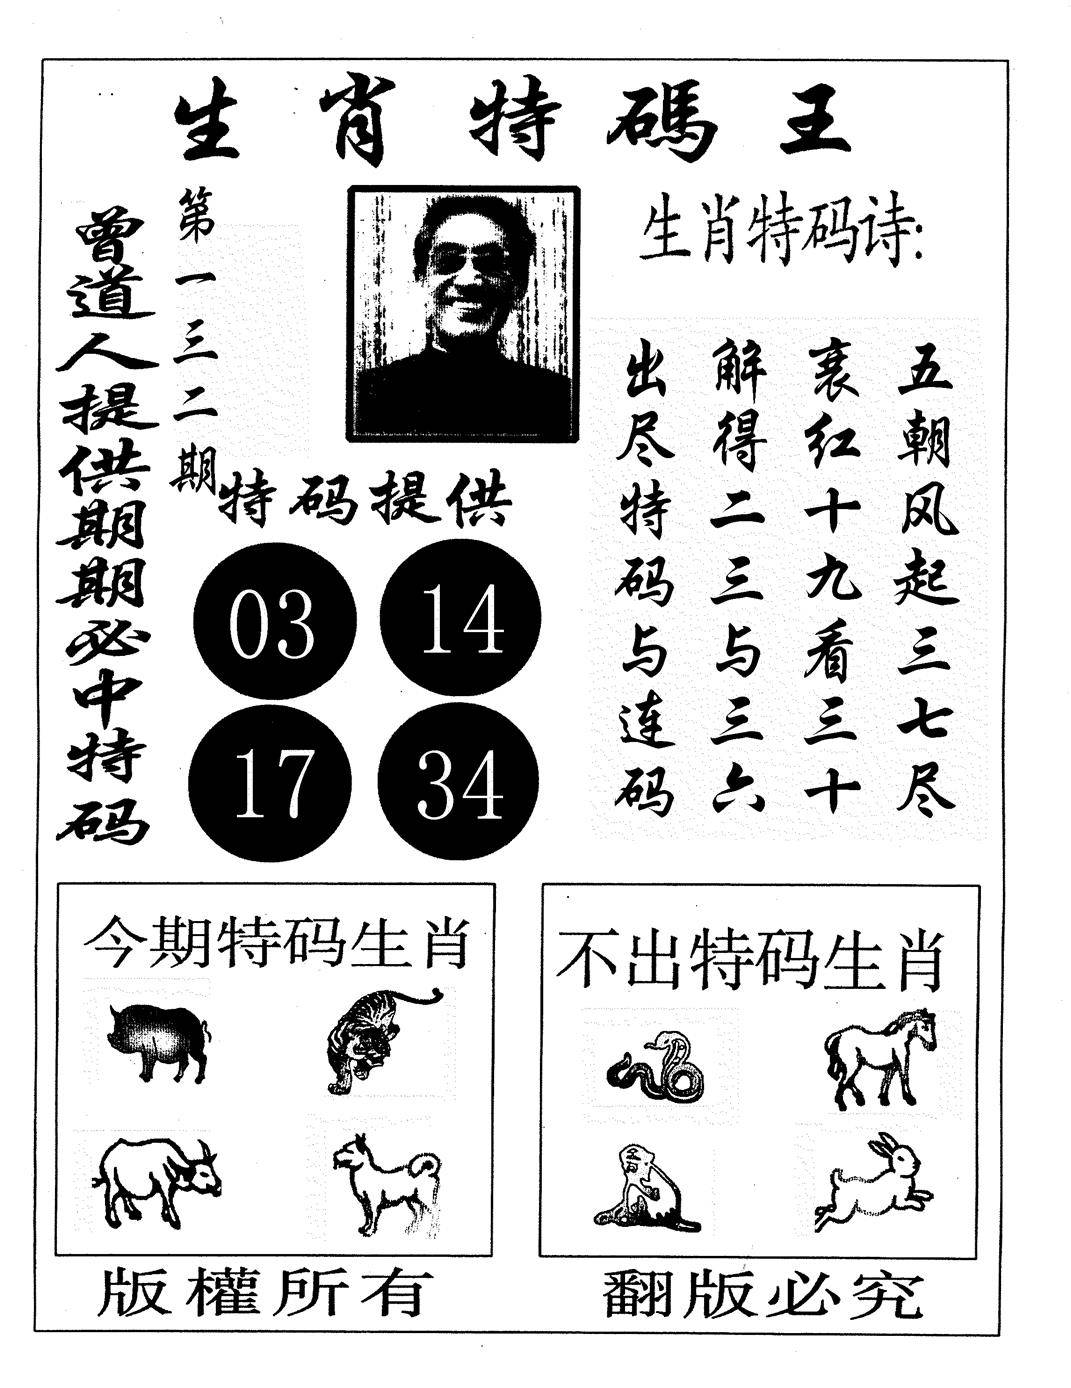 生肖特碼王
曾道人提供期期必中特码
第一三二期
生肖特码诗:
五朝风起三七尽
衰红十九看三十
解得二三与三六
出尽特码与连码
特码提供
03 14
17 34
今期特码生肖
不出特码生肖
版權所有
翻版必究